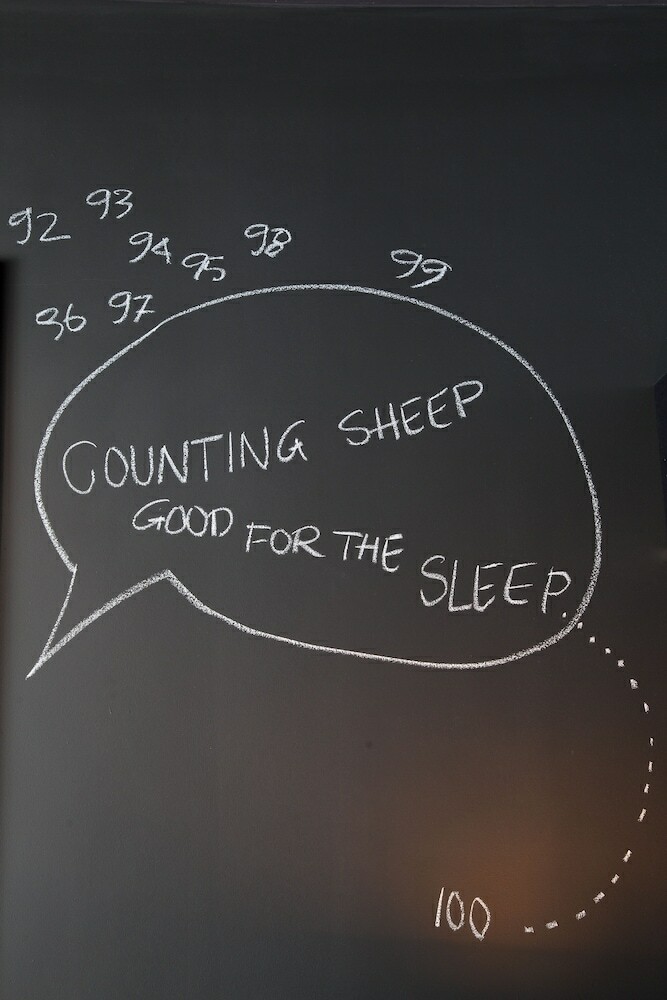 92 93
94 95 98 99
96 97
COUNTING SHEEP
GOOD FOR THE SLEEP.
100